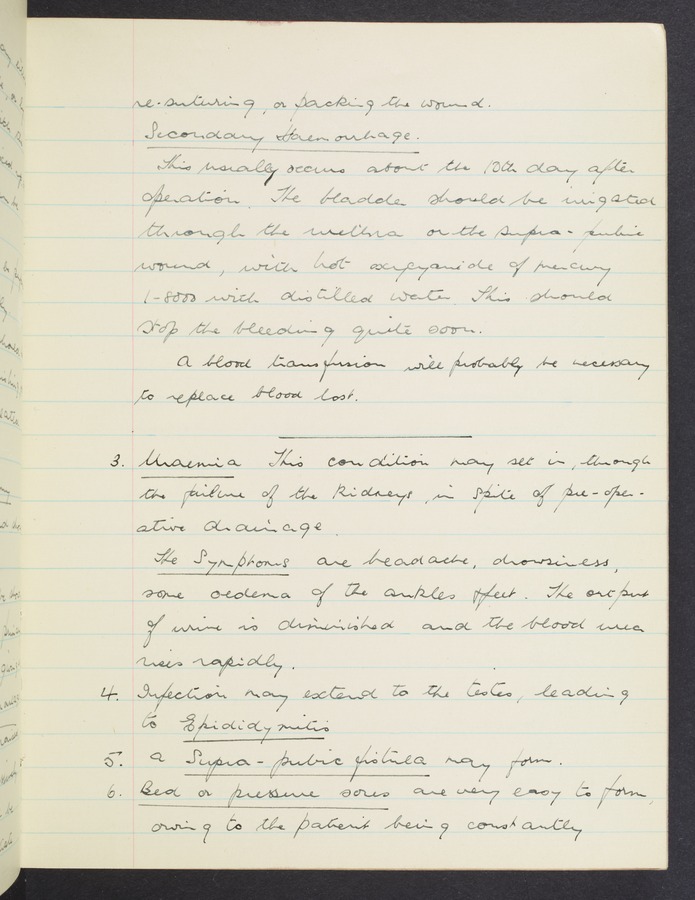 re-suturing, or packing the wound.
Secondary Haemorrhage.
This usually occurs about the 10th day after
operation. The bladder should be irrigated
through the urethra or the supra-pubic
wound, with hot oxycyanide of mercury
1-8000 with distilled water. This should
stop the bleeding quite soon.
A blood transfusion will probably be necessary
to replace blood lost.
3. Uraemia This condition may set in, through
the failure of the kidneys, in spite of pre-oper-
ative drainage.
The Symptoms are headache, drowsiness,
some oedema of the ankles & feet. The output
of urine is diminished and the blood urea
rises rapidly.
4. Infection may extend to the testes, leading
to Epididymitis
5. A Supra-pubic fistula may form.
6. Bed or pressure sores are very easy to form,
owing to the patient being constantly